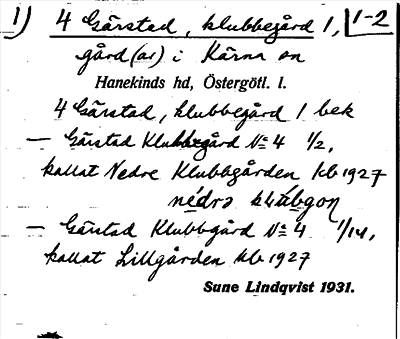 1) 4 Gärstad, klubbegård 1, 1-2
gård(ar) i Kärna sn
Hanekinds hd, Östergötl. l.
4 Gärstad, klubbegård 1 bek
— Gärstad Klubbegård No 4 1/2,
kallat Nedre Klubbgården kb 1927
nédrə klúbgoṇ
— Gärstad Klubbgård No 4 1/14,
kallat Lillgården kb 1927
Sune Lindqvist 1931.